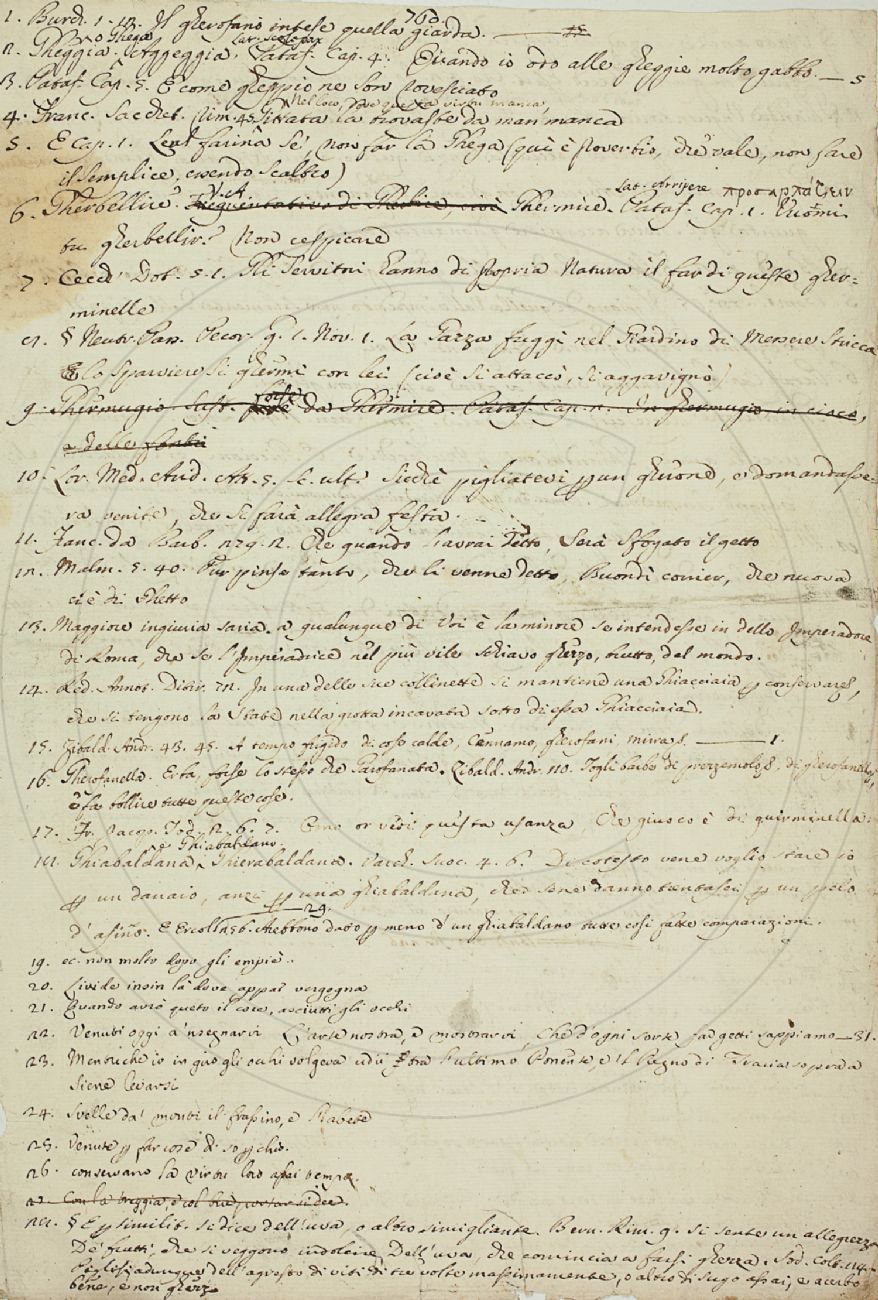 1. Burch. 1. 12. Il gherofano intese quella giarda. 760.
2. Gheggia. Acceggia. Pataf. Cap. 4. Quando io odo alle gheggie molto gabbo. — 5
3. Pataf. Cap. 5. E come gheppio ne son rovesciato
Nel loco, dove questa virtù manca,
4. Franc. Sacchet. rim. 45. Titrata la trovaste da man manca
5. E cap. 1. Leal farina se', non far la Ghega (qui è proverbio, che vale, non fare
il semplice, essendo scaltro)
Lat. Arripere προσαρπάζειν
6. Gherbellire. V. A. Frequentativo di Ghermire, cioè Ghermire. Pataf. Cap. 1.
tu gherbellir? Non cespicare
7. Cecch. Dot. 5. 1. Gli Servitori hanno di propria Natura il far di queste gher-
minelle
§ Neutr. Pass. Pecor. g. 1. Nov. 1. La Gazza fuggì nel Giardino di Messere Stricca
E lo sparviere si ghermì con lei (cioè si attaccò, si aggavignò)
9. Ghermugio. Sust. forse da Ghermire. Pataf. Cap. 2. Un ghermugio in cioco,
a delle fonti
10. Lor. Med. Arid. Att. 5. sc. ult. Sicchè pigliatevi un ghiond, e domandasse-
ra venite, che si farà allegra festa.
11. Franc. da Barb. 279. 2. Che quando l'avrai detto, Serà sfogato il getto
12. Malm. 5. 40. Pur pinse tanto, che li venne detto, Buondì corrier, che nuova
ci è di Ghetto
13. Maggiore ingiuria saria a qualunque di Voi è la minore se intendesse in dello Imperadore
di Roma, che se l'Imperadrice nel più vile schiavo gherzo, brutto, del mondo.
14. Red. Annot. Ditir. 72. In una delle sue collinette si mantiene una Ghiacciaia conservare,
che si tengono la State nella grotta incavata sotto di essa Ghiacciaia.
15. Zibald. Andr. 43. 45. A tempo frigido di cose calde, Cennamo, gherofani, mirra. — 1.
16. Gherofanello. Erba, forse lo stesso che Garofanata. Zibald. Andr. 110. Togli barbe di prezzemolo, di gherofanello,
e fa bollire tutte queste cose.
17. Fr. Jacop. Tod. 2. 6. 7. Omo or vedi questa usanza, Che giuoco è di guirminella.
o Ghiabaldano
18. Ghiabaldana, Ghierabaldana. Varch. Suoc. 4. 6. Di cotesto vene voglio stare io
un danaio, anzi una ghiabaldana, che se ne danno trentasei un pelo
d'asino. E Ercol. 256. Arebbono dato meno d'un ghiabaldano tutte così fatte comparazioni.
19. ec. non molto dopo gli empiè.
20. Livide insin là dove appar vergogna
21. Quando avrò queto il core, asciutti gli occhi
22. Venuti oggi a 'nsegnarvi L'arte nostra, e mostrarvi, Che d'ogni sorte far getti sappiamo — 31.
23. Mentrechè io in giro gli occhi volgeva udii tra l'ultimo Ponente, e il Regno di Tracia soprada
Siene levarsi
24. Svelle da' monti il frassino, e l'abete
25. Venute far cose di soperchio.
26. conservano la virtù loro assai tempo.
27. Con la treggia, e col
28. § E similit. se dice dell'uva, o altro simigliante. Bern. Rim. 9. Si sente un allegrezza
De' frutti, che si veggono indolcire Dell'uva, che comincia a farsi ghezza. Sod. Colt. 114.
Piglisi adunque dell'agresto di viti di tre volte massimamente, o altro di sugo assai, e acerbo
bene, e non ghezzo